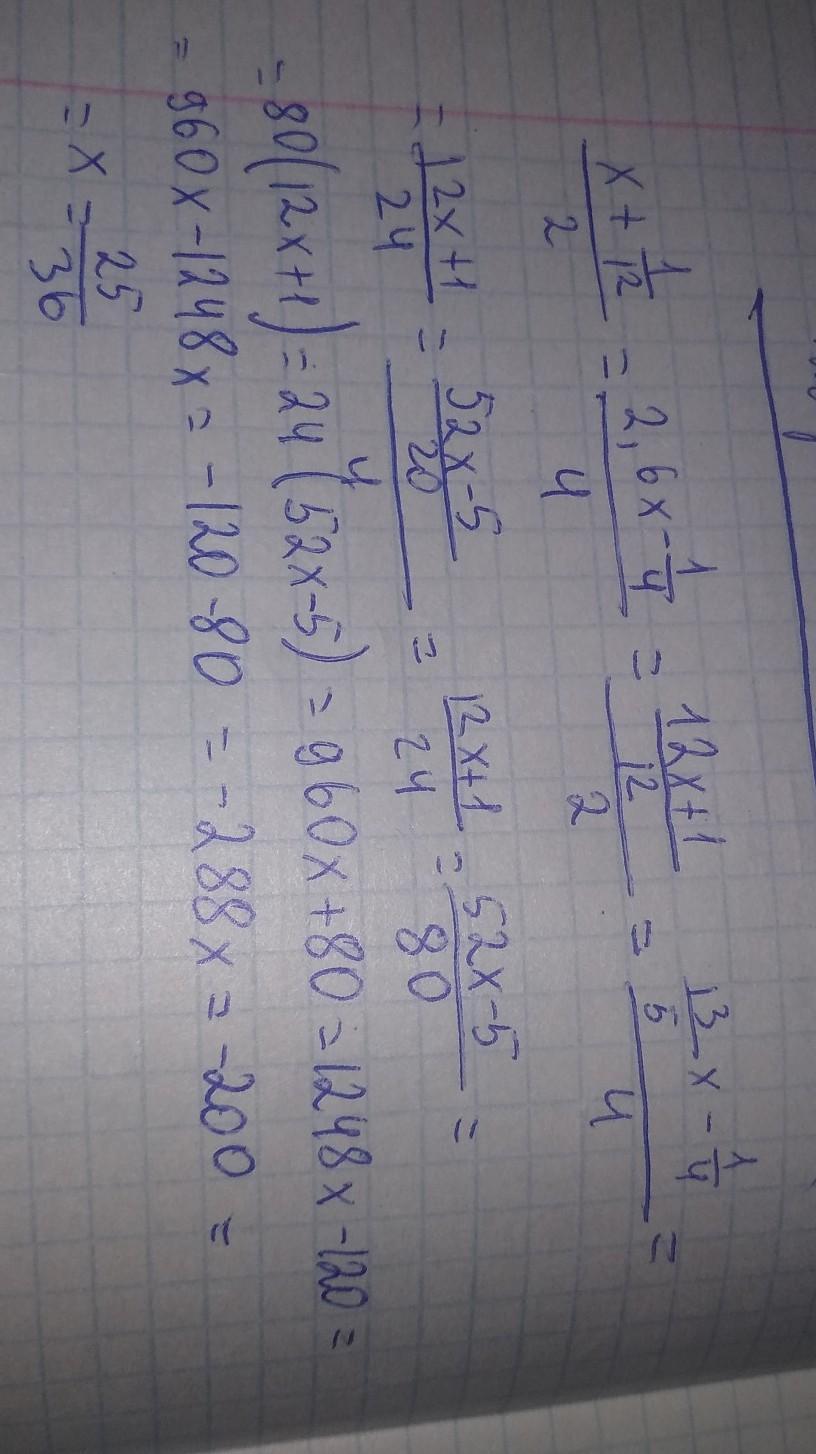 (x + 1/12)/2 = (2,6x - 1/4)/4 = ((12x+1)/12)/2 = (13/5 x - 1/4)/4 =
= (12x+1)/24 = ((52x-5)/20)/4 = (12x+1)/24 = (52x-5)/80 =
= 80(12x+1) = 24(52x-5) = 960x + 80 = 1248x - 120 =
= 960x - 1248x = -120 - 80 = -288x = -200 =
= x = 25/36